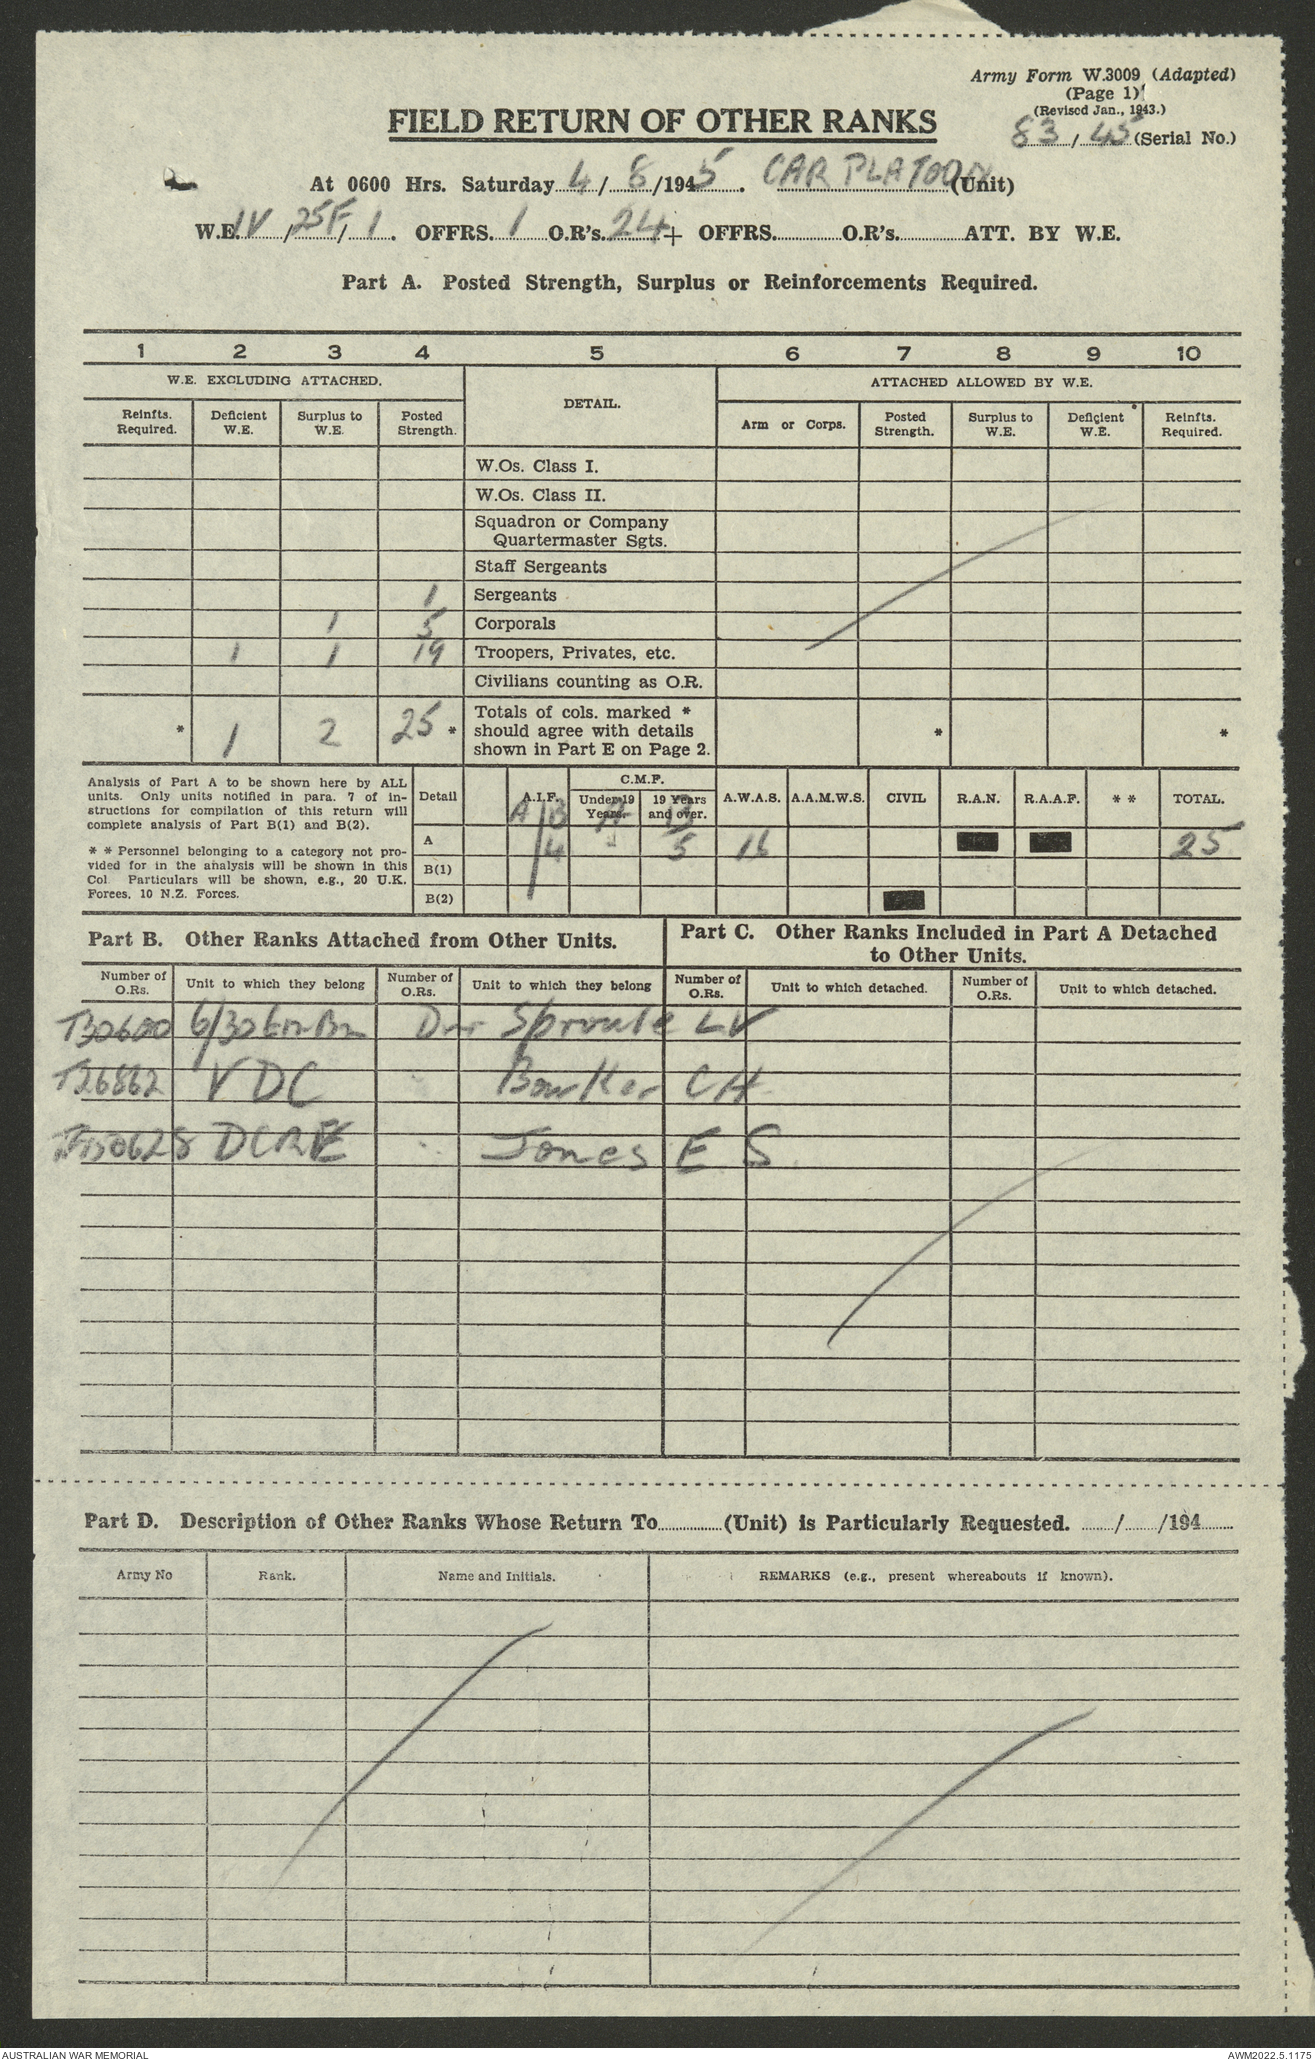 Army Form W.3009 (Adapted)
(Page 1)
(Revised Jan., 1943.)
FIELD RETURN OF OTHER RANKS
83/45 (Serial No.)
At 0600 Hrs. Saturday 4/8/1945. CAR PLATOON (Unit)
W.E. IV/25F/1. OFFRS. 1 O.R's. 24 + OFFRS. O.R's. ATT. BY W.E.
Part A. Posted Strength, Surplus or Reinforcements Required.
1 2 3 4 5 6 7 8 9 10
W.E. EXCLUDING ATTACHED. DETAIL. ATTACHED ALLOWED BY W.E.
Reinfts. Required. Deficient W.E. Surplus to W.E. Posted Strength. Arm or Corps. Posted Strength. Surplus to W.E. Deficient W.E. Reinfts. Required.
W.Os. Class I.
W.Os. Class II.
Squadron or Company
Quartermaster Sgts.
Staff Sergeants
1 Sergeants
1 5 Corporals
1 1 19 Troopers, Privates, etc.
Civilians counting as O.R.
* 1 2 25 * Totals of cols. marked * * *
should agree with details
shown in Part E on Page 2.
Analysis of Part A to be shown here by ALL
units. Only units notified in para. 7 of in-
structions for compilation of this return will
complete analysis of Part B(1) and B(2).
* * Personnel belonging to a category not pro-
vided for in the analysis will be shown in this
Col Particulars will be shown, e.g., 20 U.K.
Forces, 10 N.Z. Forces.
C.M.F.
Detail A.I.F. Under 19 Years. 19 Years and over. A.W.A.S. A.A.M.W.S. CIVIL R.A.N. R.A.A.F. * * TOTAL.
A/B A B
A 4 5 16 25
B(1)
B(2)
Part B. Other Ranks Attached from Other Units. Part C. Other Ranks Included in Part A Detached
to Other Units.
Number of O.Rs. Unit to which they belong Number of O.Rs. Unit to which they belong Number of O.Rs. Unit to which detached. Number of O.Rs. Unit to which detached.
T30600 Dvr Sproule LV
T26862 VDC Bowker CH
DCRE Jones E S
Part D. Description of Other Ranks Whose Return To (Unit) is Particularly Requested. / /194
Army No Rank. Name and Initials. REMARKS (e.g., present whereabouts if known).
AUSTRALIAN WAR MEMORIAL AWM2022.5.1175